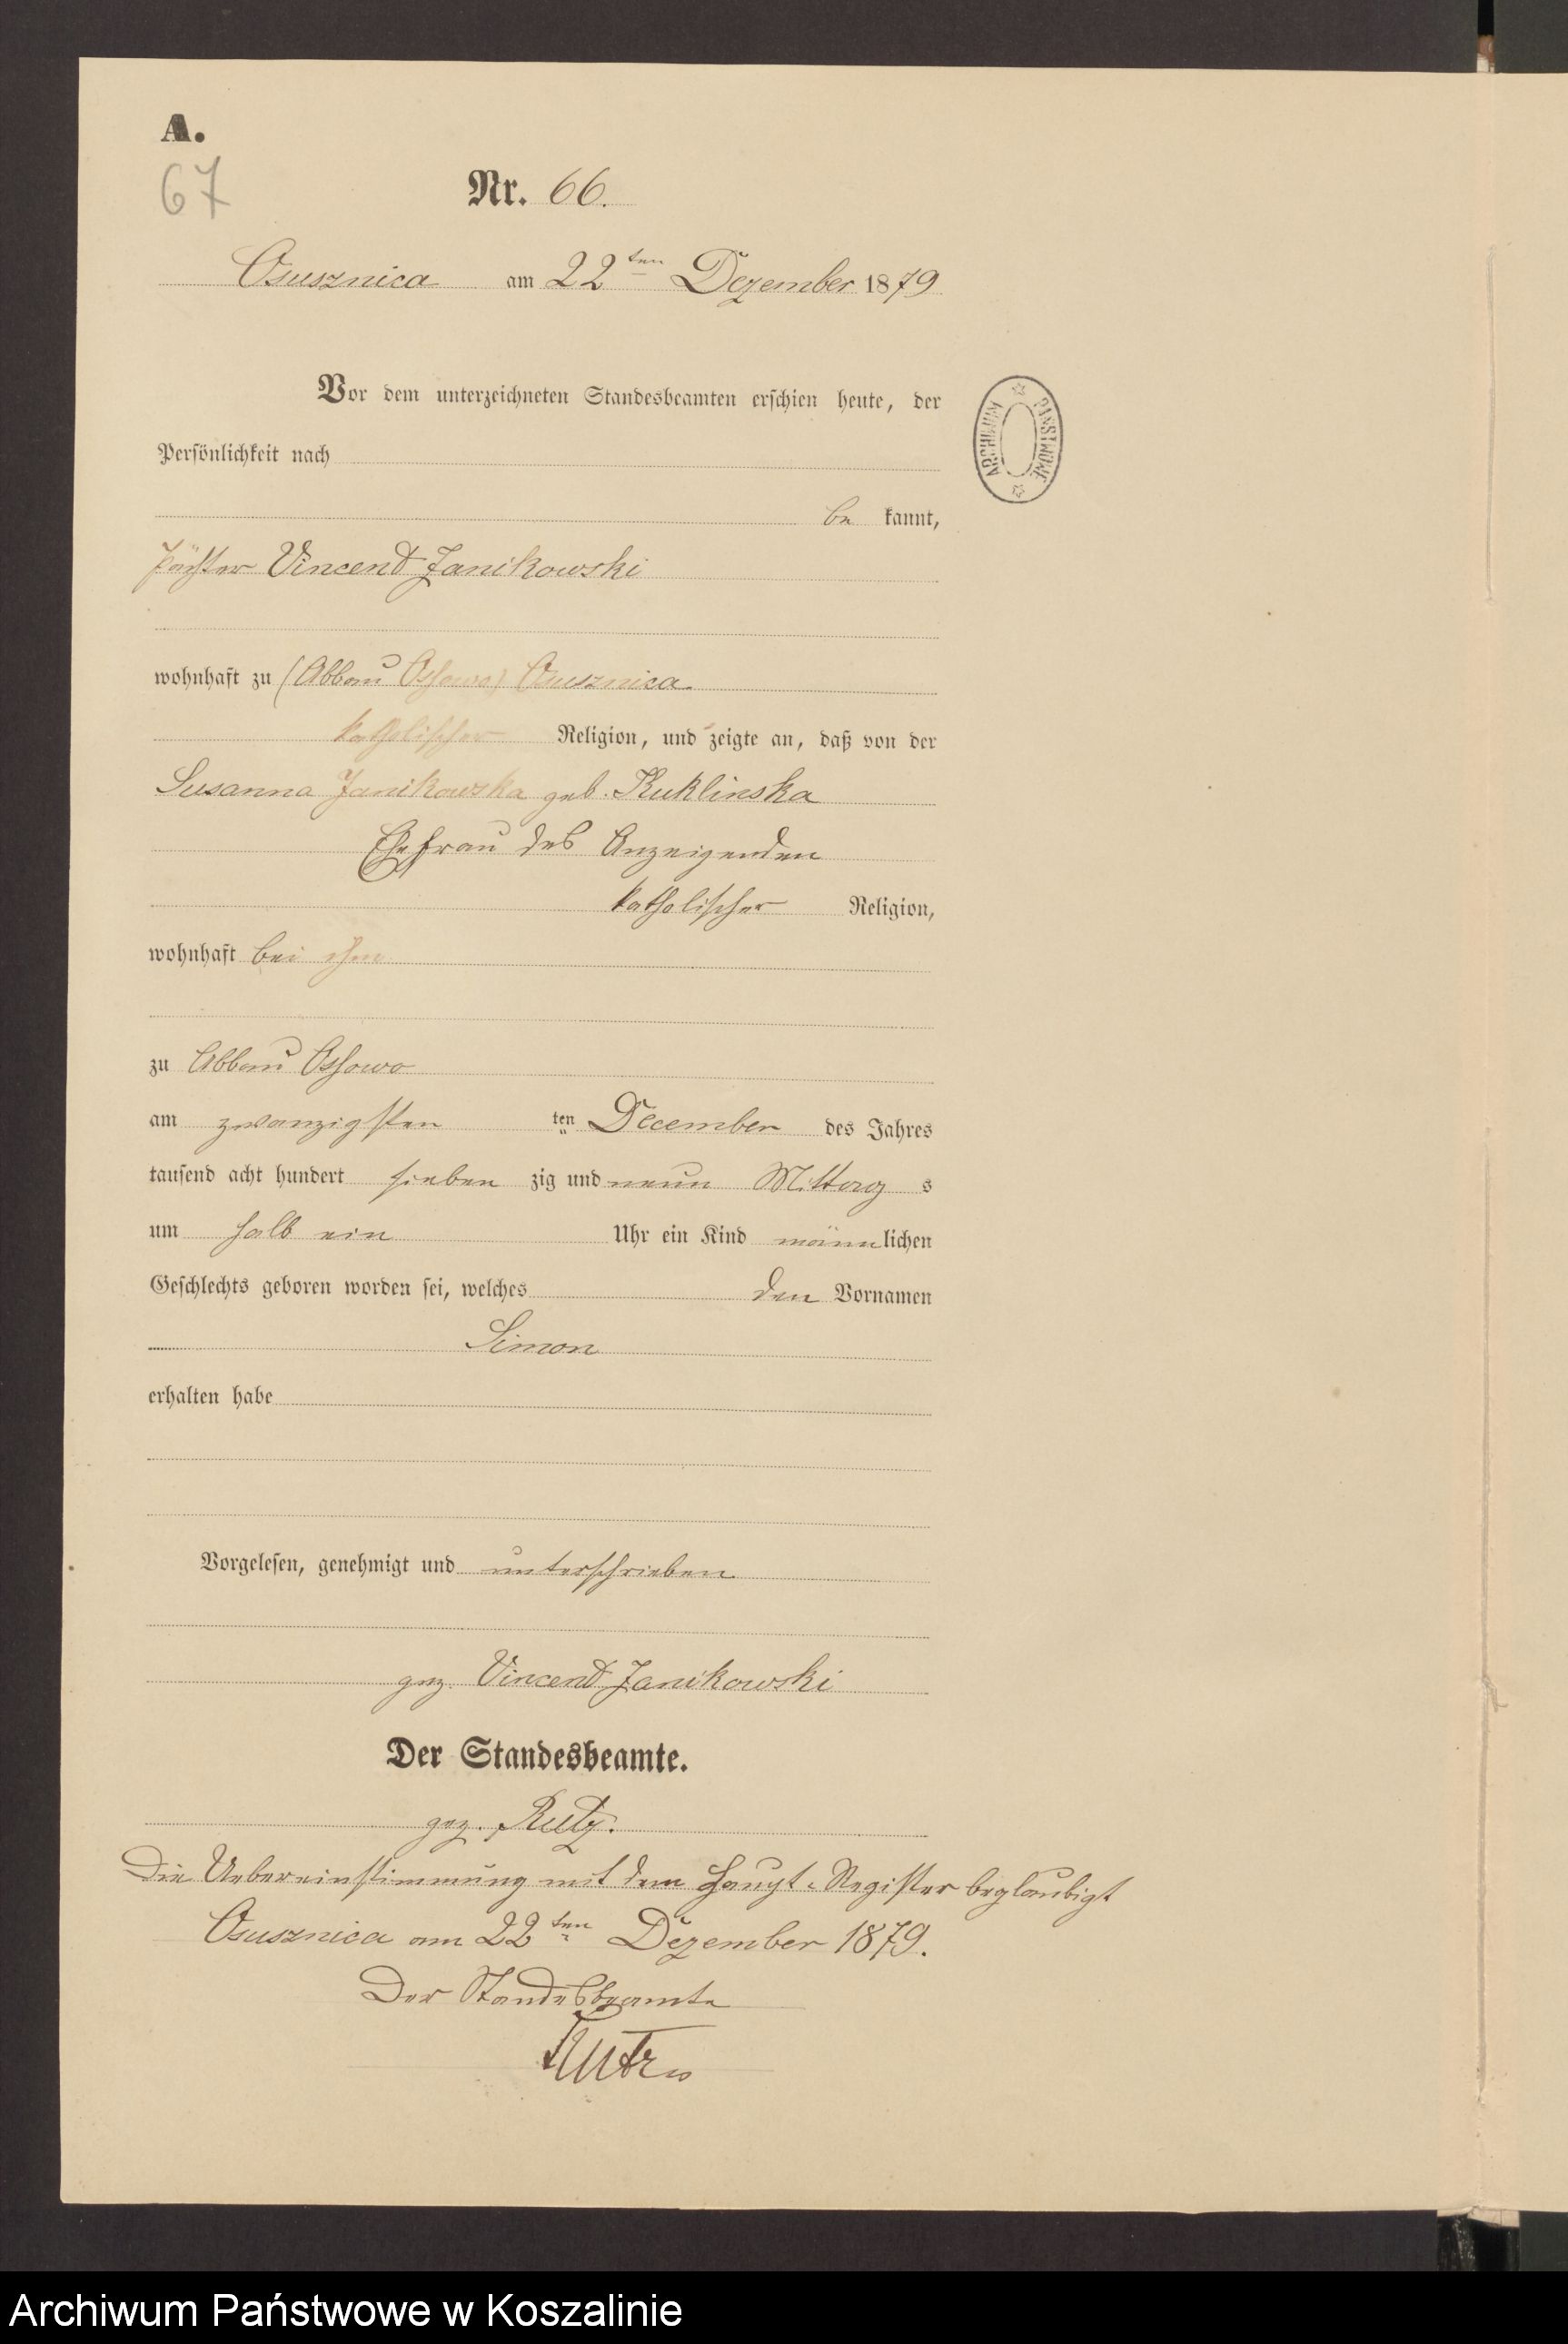 A.
67
Nr. 66.
Osusznica am 22ten Dezember 1879
Vor dem unterzeichneten Standesbeamten erschien heute, der
Persönlichkeit nach
be kannt,
Pächter Vincend Janikowski
wohnhaft zu (Abbau Ossowo) Osusznica
katholischer Religion, und zeigte an, daß von der
Susanna Janikowska geb. Kuklinska
Ehefrau des Anzeigenden
katholischer Religion,
wohnhaft bei ihm
zu Abbau Ossowo
am zwanzigsten ten December des Jahres
tausend acht hundert sieben zig und neun Mittag s
um halb ein Uhr ein Kind männlichen
Geschlechts geboren worden sei, welches den Vornamen
Simon
erhalten habe
Vorgelesen, genehmigt und unterschrieben
gez. Vincend Janikowski
Der Standesbeamte.
gez. Rutz.
Die Uebereinstimmung mit dem Haupt-Register beglaubigt
Osusznica am 22ten Dezember 1879.
Der Standesbeamte
Rutz
ARCHIWUM PAŃSTWOWE
Archiwum Państwowe w Koszalinie